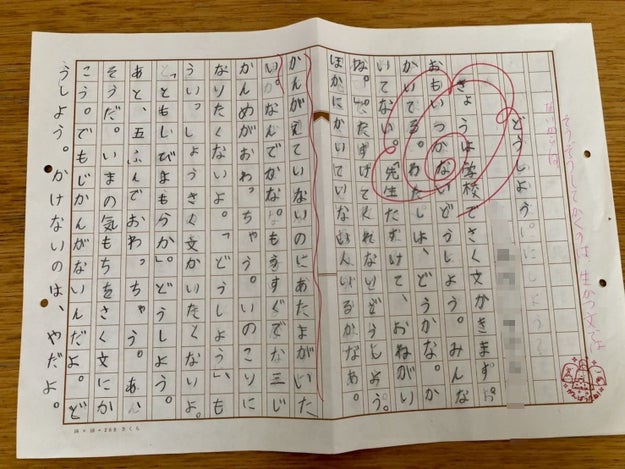 どうしよう。
きょうは学校でさく文がきます。
おもいつかないどうしよう。みんな
かいてる。わたしは、どうかな。か
いてない。「先生たすけて、おねがい
な。」たすけてくれないどうしよう。
ほかにかいていない いるかなあ。
かんがえていないのにあたまがいた
い。なんでかな。もうすぐで三じ
かんめがおわっちゃう。いのこりに
なりたくないよ。「どうしよう、も
ういっしょうさく文かいたくないよ。
ともしびよもうか。」どうしよう。
あと、五ふんでおわっちゃう。あ、
そうだ。いまの気もちをさく文にか
こう。でもじかんがないんだよ。ど
うしよう。かけないのは、やだよ。
さくら